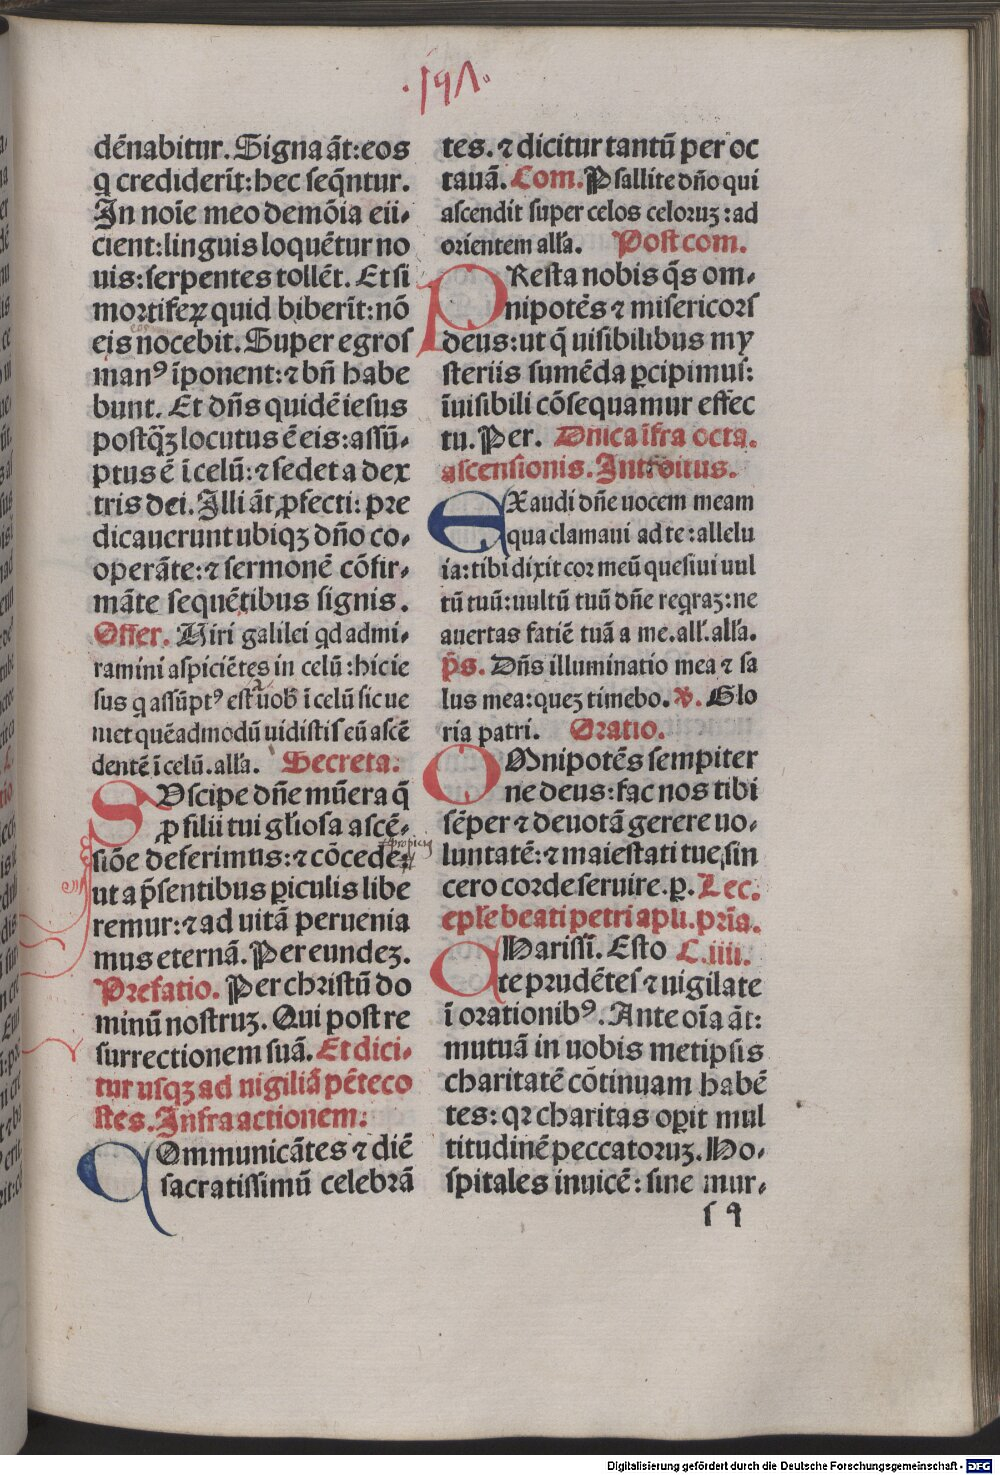 .197.
dēnabitur. Signa āt: eos
q crediderīt: hec seqūtur.
In noīe meo demōia eii-
cient: linguis loquētur no
uis: serpentes tollēt. Et si
mortiferꝝ quid biberīt: nō
eis nocebit. Super egros
manꝰ īponent: ⁊ bn̄ habe
bunt. Et dn̄s quidē iesus
postq̄ꝫ locutus ē eis: assū-
ptus ē ī celū: ⁊ sedet a dex
tris dei. Illi āt ꝓfecti: pre
dicauerunt ubiqꝫ dn̄o co-
operāte: ⁊ sermonē cōfir-
māte sequētibus signis.
Offer. Uiri galilei qd admi-
ramini aspiciētes in celū: hic ie
sus q assūptꝰ est a uob̄ ī celū sic ue
niet quēadmodū uidistis eū ascē
dentē ī celū. all'a. Secreta.
SUscipe dn̄e mūera q̄
ꝓ filii tui gl'iosa ascē-
siōe deferimus: ⁊ cōcede:
ut a p̄sentibus ꝑiculis libe
remur: ⁊ ad uitā peruenia
mus eternā. Per eundeꝫ.
Prefatio. Per christū do
minū nostruꝫ. Qui post re
surrectionem suā. Et dici-
tur usqꝫ ad uigiliā pēteco
stes. Infra actionem:
COmmunicātes ⁊ diē
sacratissimū celebrā
tes. ⁊ dicitur tantū per oc
tauā. Com. Psallite dn̄o qui
ascendit super celos celoruꝫ: ad
orientem all'a. Post com.
PResta nobis q̄s om-
nipotēs ⁊ misericors
deus: ut q̄ uisibilibus my
steriis sumēda ꝑcipimus:
īuisibili cōsequamur effec
tu. Per. Dnica īfra octa.
ascensionis. Introitus.
EXaudi dn̄e uocem meam
qua clamaui ad te: allelu
ia: tibi dixit cor meū quesiui uul
tū tuū: uultū tuū dn̄e reqraꝫ: ne
auertas fatiē tuā a me. all'. all'a.
p̄s. Dn̄s illuminatio mea ⁊ sa
lus mea: queꝫ timebo. ℣. Glo
ria patri. Oratio.
OMnipotēs sempiter
ne deus: fac nos tibi
sēper ⁊ deuotā gerere uo-
luntatē: ⁊ maiestati tue sin
cero corde seruire. ꝑ. Lec.
epl'e beati petri apli. prīa.
CHarissī. Esto C. iiii.
te prudētes ⁊ uigilate
ī orationibꝰ. Ante oīa āt:
mutuā in uobis metipsis
charitatē cōtinuam habē
tes: qꝛ charitas oꝑit mul
titudinē peccatoruꝫ. Ho-
spitales inuicē: sine mur-
Digitalisierung gefördert durch die Deutsche Forschungsgemeinschaft - DFG